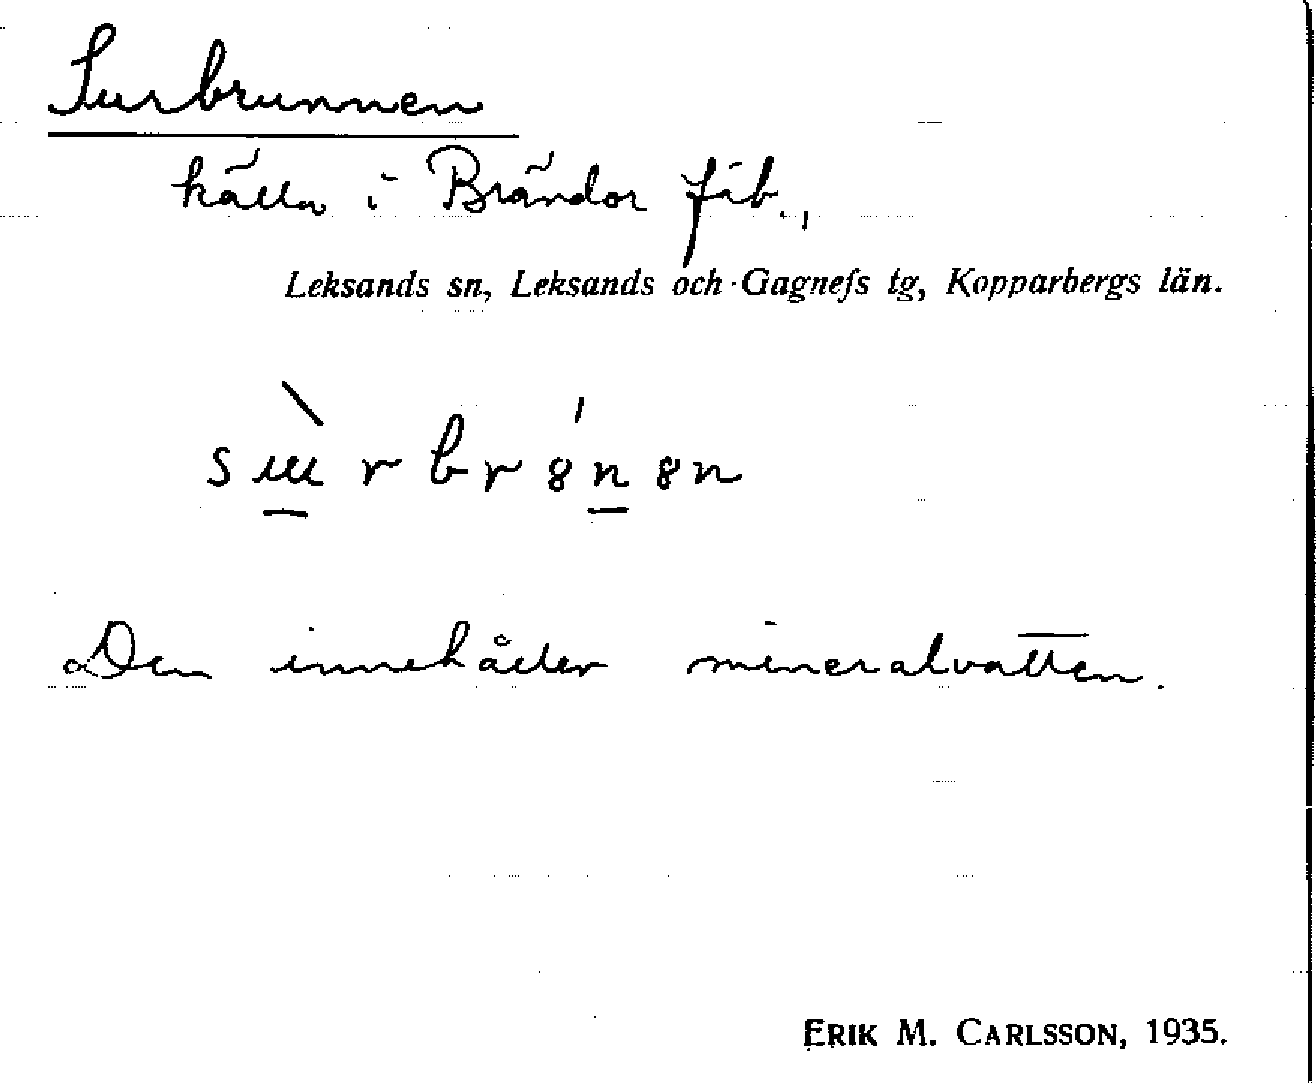 Surbrunnen
källa i Brändor fäb.,
Leksands sn, Leksands och Gagnefs tg, Kopparbergs län.
Den innehåller mineralvatten.
ERIK M. CARLSSON, 1935.